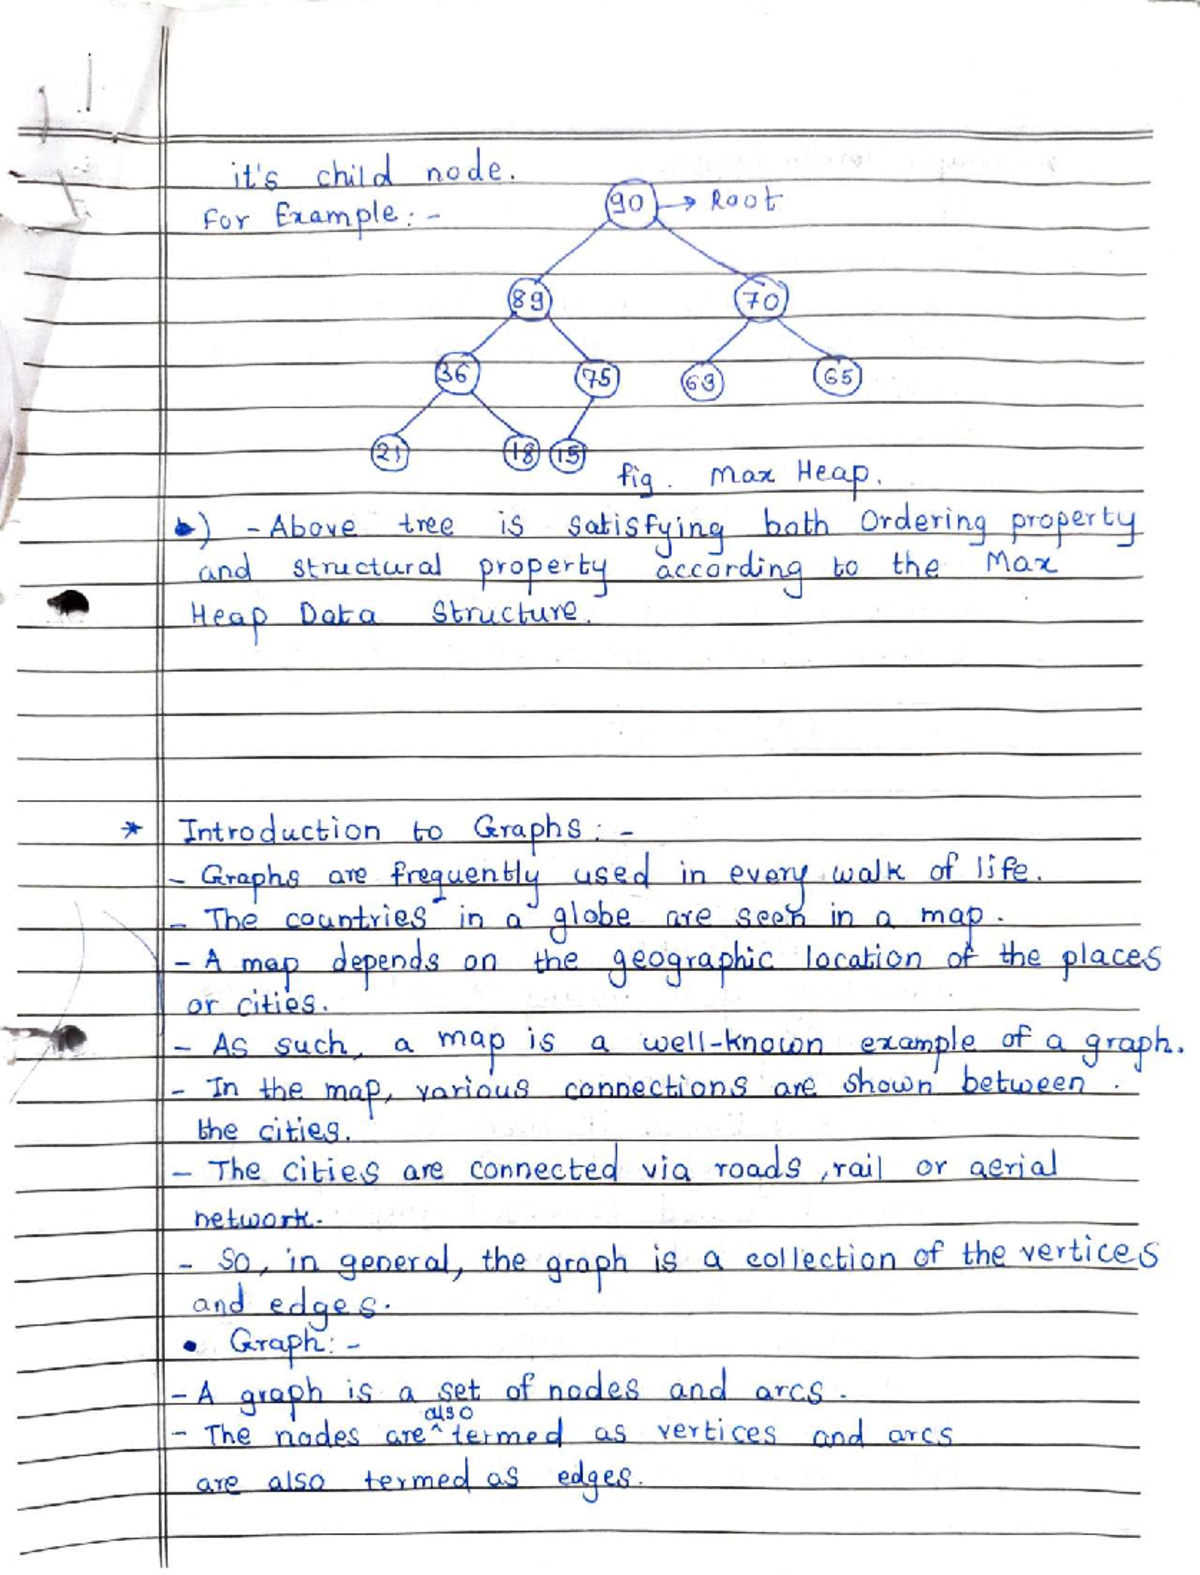 it's child node.
For Example:-
90 → Root
89 70
36 75 63 65
21 18 15
fig. Max Heap.
) - Above tree is satisfying both Ordering property
and structural property according to the Max
Heap Data Structure.
* Introduction to Graphs:-
- Graphs are frequently used in every walk of life.
- The countries in a globe are seen in a map.
- A map depends on the geographic location of the places
or cities.
- As such, a map is a well-known example of a graph.
- In the map, various connections are shown between
the cities.
- The cities are connected via roads, rail or aerial
network.
- So, in general, the graph is a collection of the vertices
and edges.
• Graph:-
- A graph is a set of nodes and arcs.
- The nodes are ^also termed as vertices and arcs
are also termed as edges.